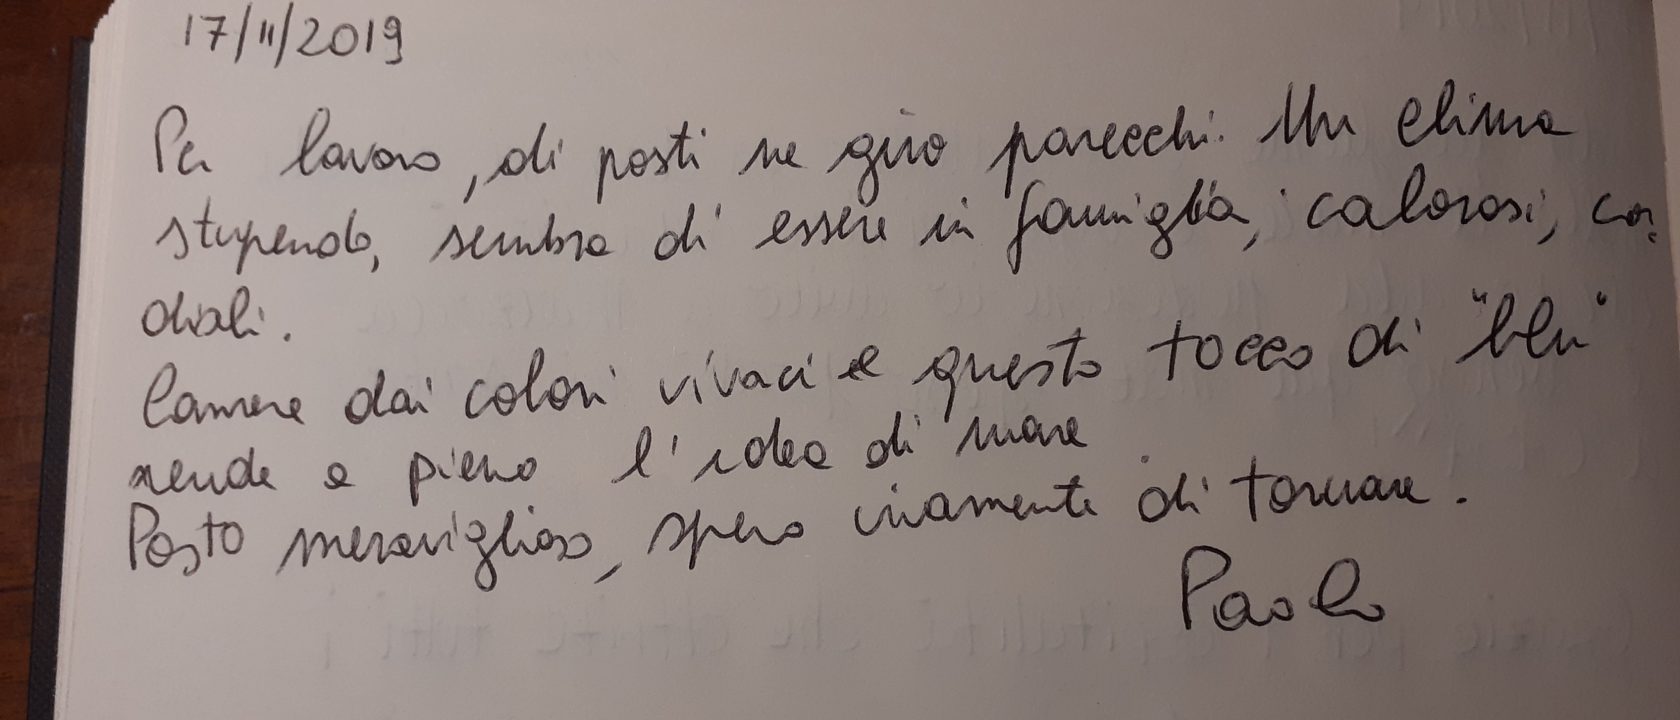 17/11/2019
Per lavoro, di posti ne giro parecchi. Un clima
stupendo, sembra di essere in famiglia, calorosi, cor-
diali.
Camere dai colori vivaci e questo tocco di "blu"
rende a pieno l'idea di mare
Posto meraviglioso, spero vivamente di tornare.
Paolo